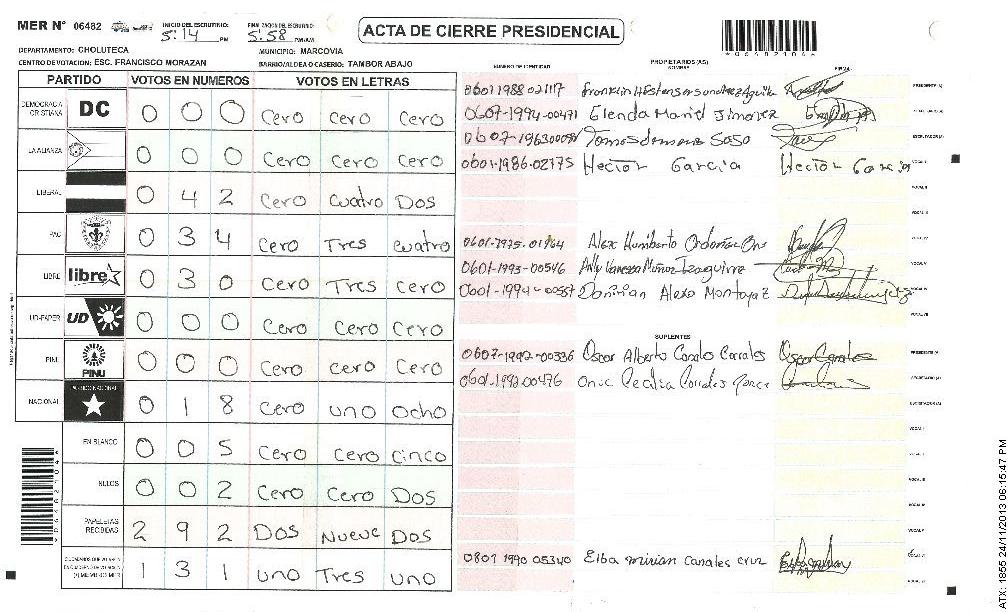 MER N° 06482 INICIO DEL ESCRUTINIO: 5:14 PM FINALIZACION DEL ESCRUTINIO: 5:58 PM/AM
ACTA DE CIERRE PRESIDENCIAL
*06482104*
DEPARTAMENTO: CHOLUTECA MUNICIPIO: MARCOVIA
CENTRO DE VOTACION: ESC. FRANCISCO MORAZAN BARRIO/ALDEA O CASERIO: TAMBOR ABAJO
PARTIDO VOTOS EN NUMEROS VOTOS EN LETRAS
DEMOCRACIA CRISTIANA DC 0 0 0 Cero Cero Cero
LA ALIANZA 0 0 0 Cero Cero Cero
LIBERAL 0 4 2 Cero Cuatro Dos
PAC 0 3 4 Cero Tres Cuatro
LIBRE libre 0 3 0 Cero Tres Cero
UD-FAPER UD 0 0 0 Cero Cero Cero
PINU PINU 0 0 0 Cero Cero Cero
NACIONAL PARTIDO NACIONAL 0 1 8 Cero uno ocho
EN BLANCO 0 0 5 Cero Cero Cinco
NULOS 0 0 2 Cero Cero Dos
PAPELETAS RECIBIDAS 2 9 2 Dos Nueve Dos
CIUDADANOS QUE VOTARON 1 3 1 uno Tres uno
NUMERO DE IDENTIDAD PROPIETARIOS (AS) NOMBRE FIRMA
0601 1988 02117 PRESIDENTE (A)
0607-1994-00471 Glenda Mariel Jimenez SECRETARIO (A)
ESCRUTADOR (A)
0601-1986-02775 Hector Garcia Hector Garcia VOCAL I
VOCAL II
VOCAL III
0601-1975-01964 Alex Humberto VOCAL IV
0601-1993-00546 VOCAL V
0601-1994-00557 VOCAL VI
VOCAL VII
SUPLENTES
0607-1992-00336 Oscar Alberto Canales Corrales PRESIDENTE (A)
0601-1992-00476 SECRETARIO (A)
ESCRUTADOR (A)
VOCAL I
VOCAL II
VOCAL III
VOCAL IV
VOCAL V
0801 1990 05340 Elba mirian canales cruz VOCAL VI
VOCAL VII
ATX: 1855 24/11/2013 06:15:47 PM